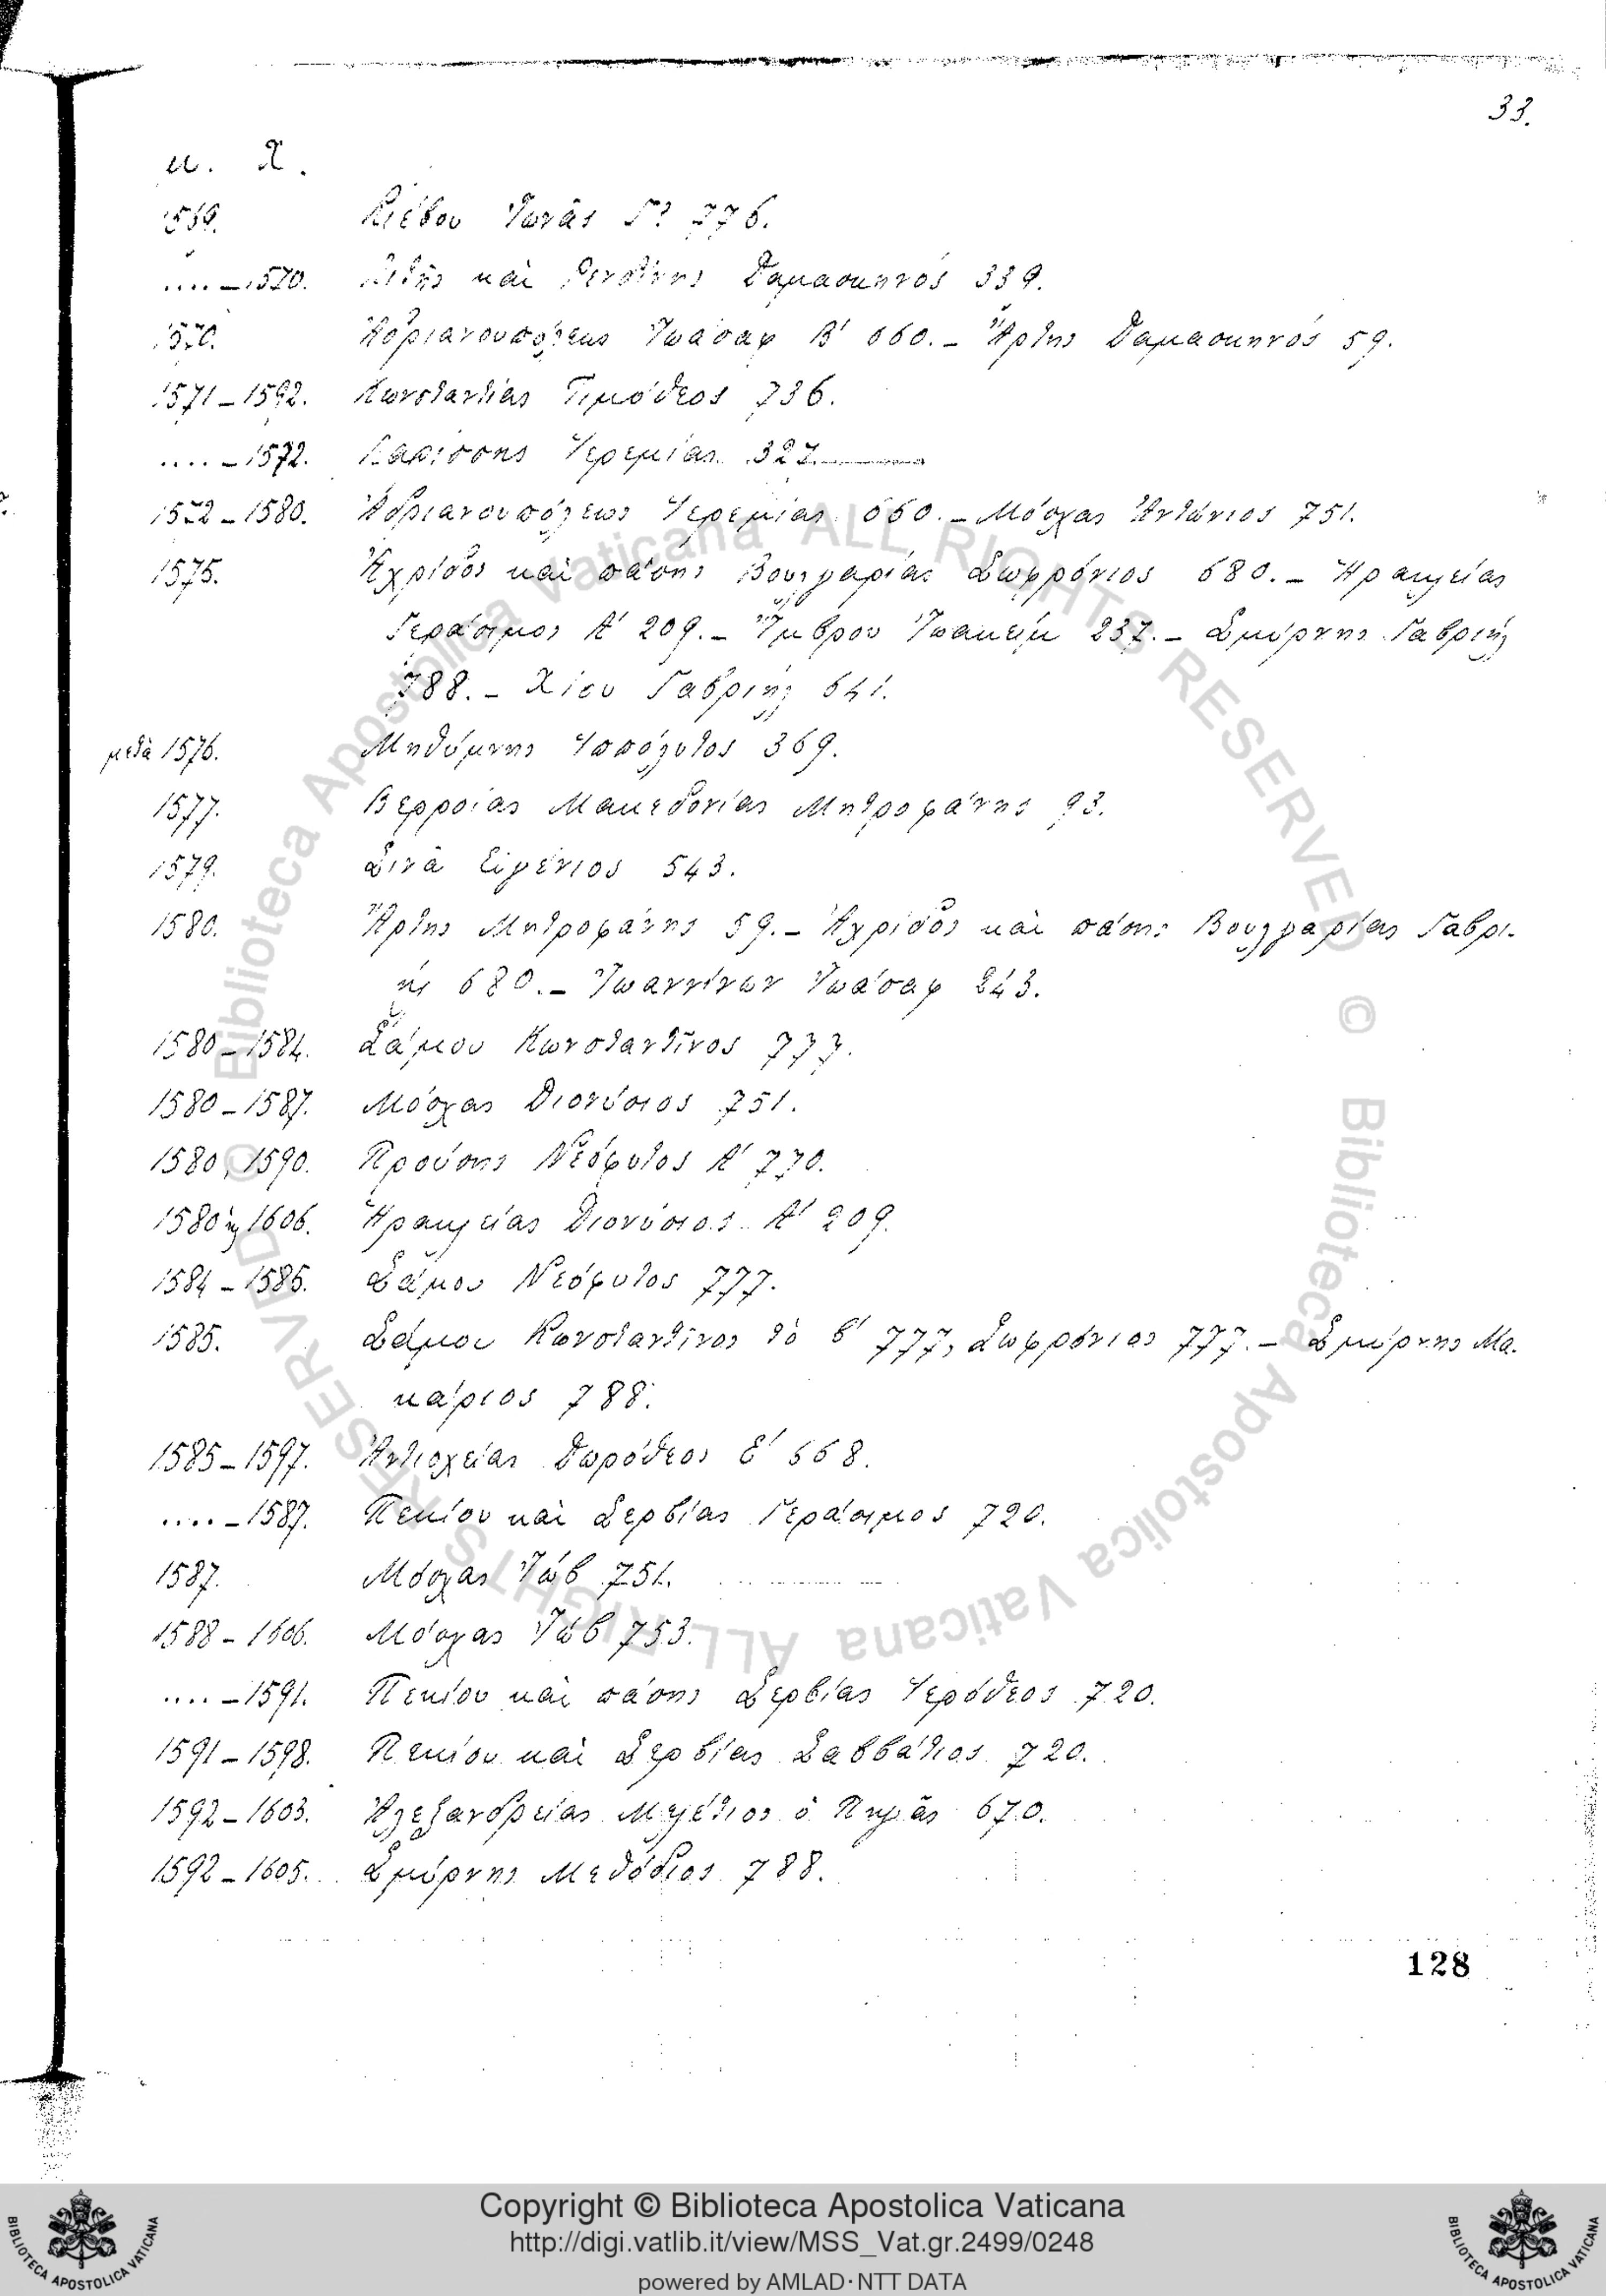 33.
μ. Χ.
1569. Κιέβου Ἰωνᾶς Γ? 776.
.... – 1570. Λιτῆς καὶ Ρενδίνης Δαμασκηνός 339.
1570. Ἀδριανουπόλεως Ἰωάσαφ Β' 660. – Ἄρτης Δαμασκηνός 59.
1571 – 1592. Κωνσταντίας Τιμόθεος 736.
.... – 1572. Λαρίσσης Ἱερεμίας 327.
1572 – 1580. Ἀδριανουπόλεως Ἱερεμίας 660. – Μόσχας Ἀντώνιος 751.
1575. Ἀχρίδος καὶ πάσης Βουλγαρίας Σωφρόνιος 680. – Ἡρακλείας
Γεράσιμος Α' 209. – Ἴμβρου Ἰωακείμ 237. – Σμύρνης Γαβριήλ
788. – Χίου Γαβριήλ 641.
μετὰ 1576. Μηθύμνης Ἱππόλυτος 369.
1577. Βερροίας Μακεδονίας Μητροφάνης 93.
1579. Σινᾶ Εὐγένιος 543.
1580. Ἄρτης Μητροφάνης 59. – Ἀχρίδος καὶ πάσης Βουλγαρίας Γαβρι-
ήλ 680. – Ἰωαννίνων Ἰωάσαφ 243.
1580 – 1584. Σάμου Κωνσταντῖνος 777.
1580 – 1587. Μόσχας Διονύσιος 751.
1580, 1590. Προύσης Νεόφυτος Α' 770.
1580 ἢ 1606. Ἡρακλείας Διονύσιος Α' 209.
1584 – 1585. Σάμου Νεόφυτος 777.
1585. Σάμου Κωνσταντῖνος τὸ β' 777, Σωφρόνιος 777. – Σμύρνης Μα-
κάριος 788.
1585 – 1597. Ἀντιοχείας Δωρόθεος Ε' 668.
.... – 1587. Πεκίου καὶ Σερβίας Γεράσιμος 720.
1587. Μόσχας Ἰώβ 751.
1588 – 1606. Μόσχας Ἰώβ 753.
.... – 1591. Πεκίου καὶ πάσης Σερβίας Ἱερόθεος 720.
1591 – 1598. Πεκίου καὶ Σερβίας Σαββάτιος 720.
1592 – 1603. Ἀλεξανδρείας Μελέτιος ὁ Πηγᾶς 670.
1592 – 1605. Σμύρνης Μεθόδιος 788.
128
© Biblioteca Apostolica Vaticana ALL RIGHTS RESERVED © Biblioteca Apostolica Vaticana ALL RIGHTS RESERVED
Copyright © Biblioteca Apostolica Vaticana
http://digi.vatlib.it/view/MSS_Vat.gr.2499/0248
powered by AMLAD·NTT DATA
BIBLIOTECA APOSTOLICA VATICANA
BIBLIOTECA APOSTOLICA VATICANA